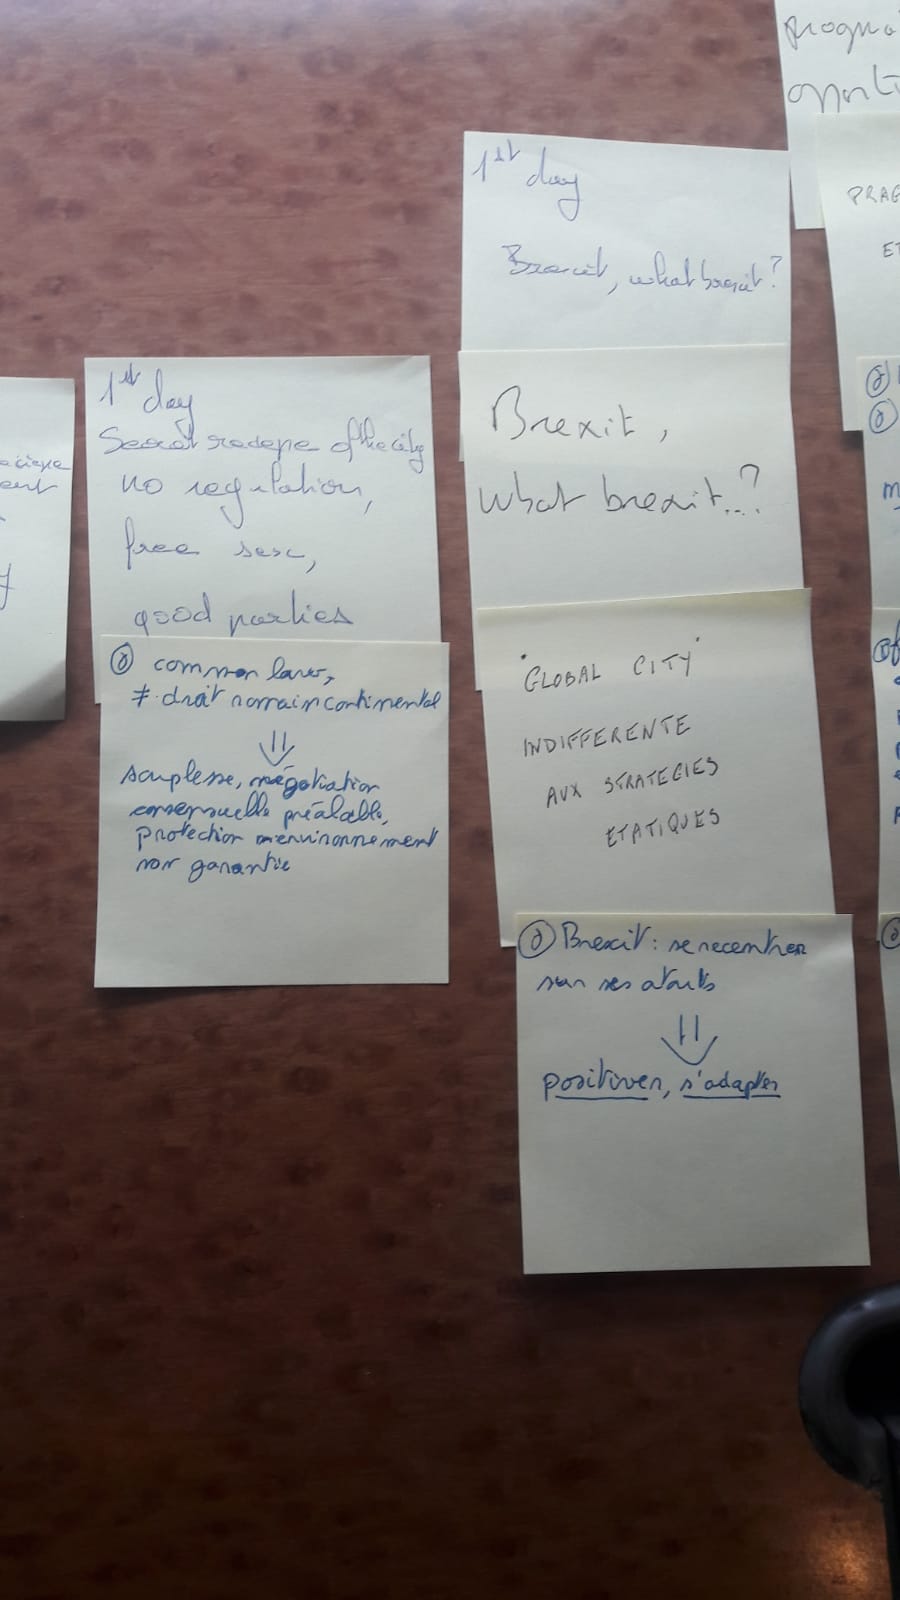 1st day
Secret recepe of the city
no regulation,
free sex,
good parties
① common law,
≠ droit romain continental
⇓
souplesse, négociation
consensuelle préalable,
protection environnement
non garantie
1st day
Brexit, what brexit?
Brexit,
what brexit...?
"GLOBAL CITY"
INDIFFERENTE
AUX STRATEGIES
ETATIQUES
① Brexit : se recentrer
sur ses atouts
⇓
positiver, s'adapter
PRAG
ET